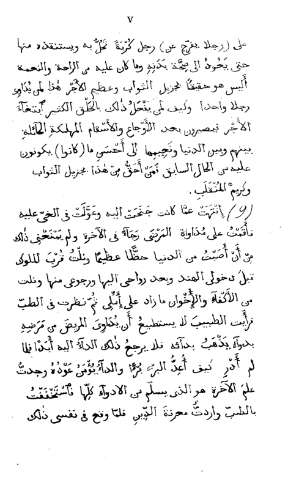 ٧
على (رجلا يفرّج عن) رجل كربة تحلّ به ويستنقذه منها
حتى يعود الى صحّة بدنه وما كان عليه من الراحة والنعمة
أليس هو حقيقًا بجزيل الثواب وعظيم الأجر هذا لمن يُداوى
رجلا واحدا وكيف لمن يفعل ذلك بالخلق الكثير ابتغاءَ
الأجر فيصيرون بعد الأوجاع والأسقام المهلكة الحائلة
بينهم وبين الدنيا ونعيمها الى أحسن ما (كانوا) يكونون
عليه من الحال السابق فمن أحقّ من هذا بجزيل الثواب
وكريم المنقلب.
(9) انتهت عمّا كانت جنحت اليه وعوّلت في الحقّ عليه
فأقمت على مداواة المرضى رجاءَ في الآخرة ولم يمنعني ذلك
من أن أصبت من الدنيا حظًّا عظيمًا ونلت قربَ الملوك
قبل دخولى الهند وبعد رواحى اليها ورجوعى منها ونلت
من الأكفاء والإخوان ما زاد على أملى ثمّ نظرت فى الطبّ
فرأيت الطبيبَ لا يستطيع أن يُداوىَ المريض من مرضه
بدواء يذهب بدائه فلا يرجع ذلك الداء اليه أبدًا فلمّا
لم أدرِ كيف أعدّ البرءَ برءًا والداءُ لا يؤمن عوده وجدتُ
علم الآخرة هو الذى يسلم من الادواء كلّها فاستخففتُ
بالطبّ واردتُ معرفة الدِّين فلمّا وقع فى نفسى ذلك